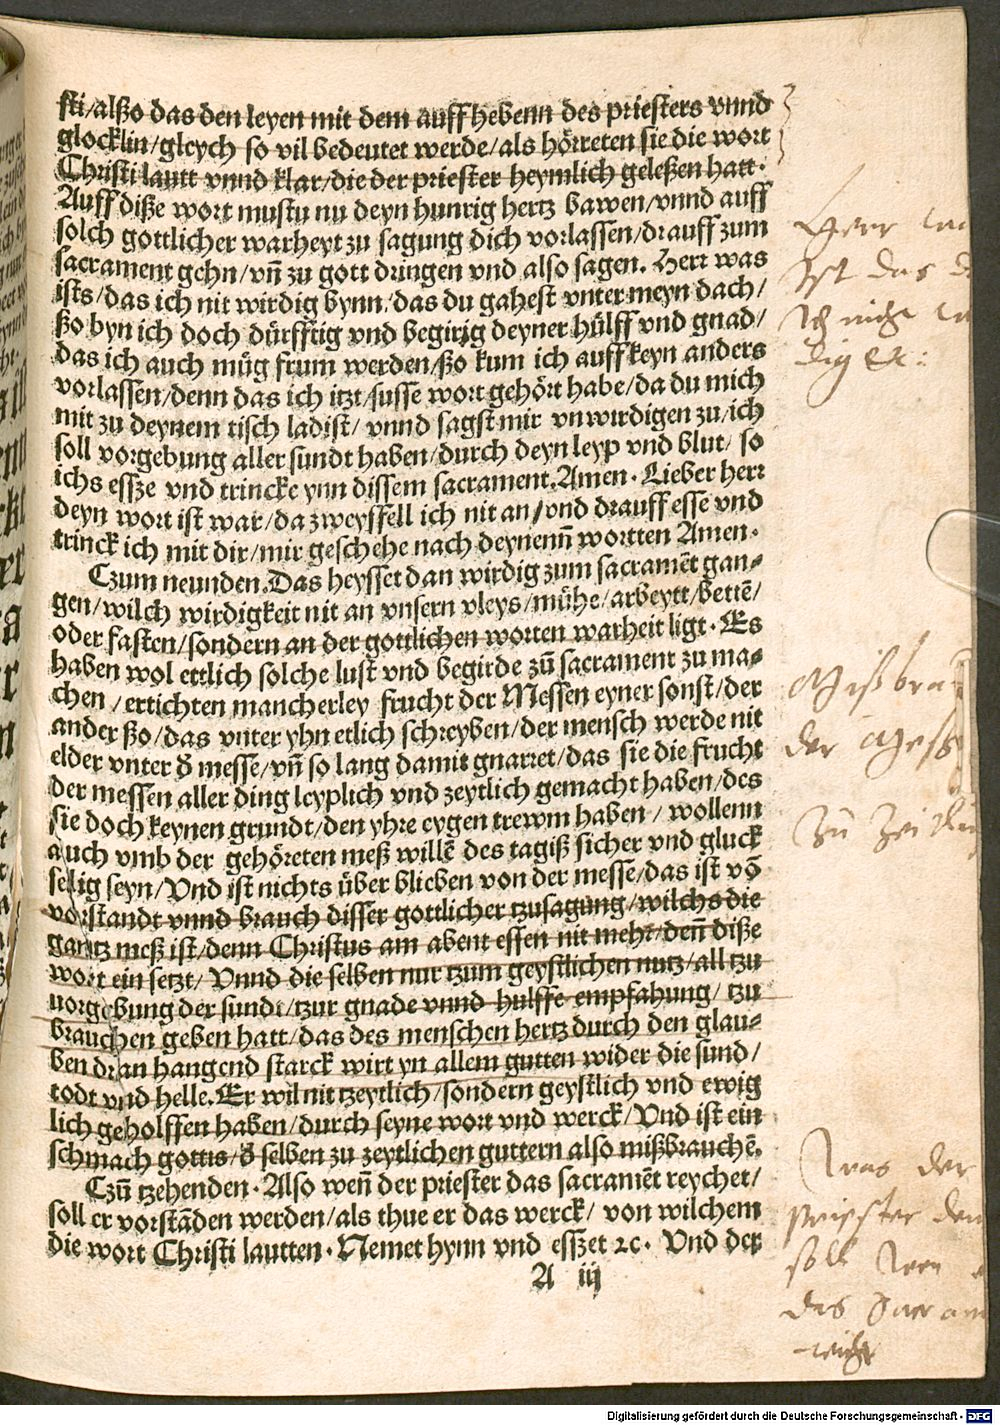 sti/alßo das den leyen mit dem auffhebenn des priesters vnnd
glocklin/gleych so vil bedeutet werde/als hörreten sie die wort
Christi lautt vnnd klar/die der priester heymlich geleßen hatt.
Auff diße wort mustu nu deyn hunrig hertz bawen/vnnd auff
solch gottlicher warheyt zu sagung dich vorlassen/drauff zum
sacrament gehn/vn̄ zu gott dringen vnd also sagen. Herr was
ists/das ich nit wirdig bynn/das du gahest vnter meyn dach/
ßo byn ich doch dürfftig vnd begirig deyner hülff vnd gnad/
das ich auch müg frum werden/ßo kum ich auff keyn anders
vorlassen/denn das ich itzt/susse wort gehört habe/da du mich
mit zu deynem tisch ladist/vnnd sagst mir vnwirdigen zu/ich
soll vorgebung aller sundt haben/durch deyn leyp vnd blut/so
ichs essze vnd trincke ynn dissem sacrament. Amen. Lieber herr
deyn wort ist war/da zweyffell ich nit an/vnd drauff esse vnd
trinck ich mit dir/mir geschehe nach deynenn̄ wortten Amen.
Czum neunden. Das heysset dan wirdig zum sacramēt gan-
gen/wilch wirdigkeit nit an vnsern vleys/mühe/arbeytt/bettē/
oder fasten/sondern an der gottlichen worten warheit ligt. Es
haben wol ettlich solche lust vnd begirde zū sacrament zu ma-
chen/ertichten mancherley frucht der Messen eyner sonst/der
ander ßo/das vnter yhn etlich schreyben/der mensch werde nit
elder vnter d̄ messe/vn̄ so lang damit gnarret/das sie die frucht
der messen aller ding leyplich vnd zeytlich gemacht haben/des
sie doch keynen grundt/den yhre eygen trewm haben/wollenn
auch vmb der gehöreten meß willē des tagiß sicher vnd gluck
selig seyn/Vnd ist nichts über blieben von der messe/das ist vō
vorstandt vnnd brauch disser gottlicher tzusagung/wilchs die
gantz meß ist/denn Christus am abent essen nit mehr/den̄ diße
wort ein setzt/Vnnd die selben nur tzum geystlichen nutz/all tzu
vorgebung der sundt/tzur gnade vnnd hulffe empfahung/tzu
brauchen geben hatt/das des menschen hertz durch den glau-
ben dran hangend starck wirt yn allem gutten wider die sund/
todt vnd helle. Er wil nit tzeytlich/sondern geystlich vnd ewig
lich geholffen haben/durch seyne wort vnd werck/Vnd ist ein
schmach gottis/d̄ selben zu zeytlichen guttern also mißbrauchē.
Czū tzehenden. Also wen̄ der priester das sacramēt reychet/
soll er vorstāden werden/als thue er das werck/von wilchem
die wort Christi lautten. Nemet hynn vnd esszet ꝛc. Vnd der
A iij
Herr
Ist das
Ich nicht
dig ꝛc:
Mißbrau
der Meß
Zū
Was der
priester den
soll
das Sacram
reicht
Digitalisierung gefördert durch die Deutsche Forschungsgemeinschaft - DFG